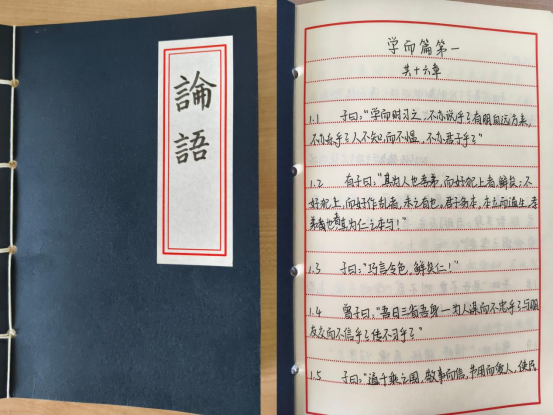 論語
学而篇第一
共十六章
1.1 子曰:“学而时习之,不亦说乎?有朋自远方来,
不亦乐乎?人不知而不愠,不亦君子乎?”
1.2 有子曰:“其为人也孝弟,而好犯上者,鲜矣;不
好犯上,而好作乱者,未之有也。君子务本,本立而道生。孝
弟者也,其为仁之本与!”
1.3 子曰:“巧言令色,鲜矣仁!”
1.4 曾子曰:“吾日三省吾身—为人谋而不忠乎?与朋
友交而不信乎?传不习乎?”
1.5 子曰:“道千乘之国,敬事而信,节用而爱人,使民